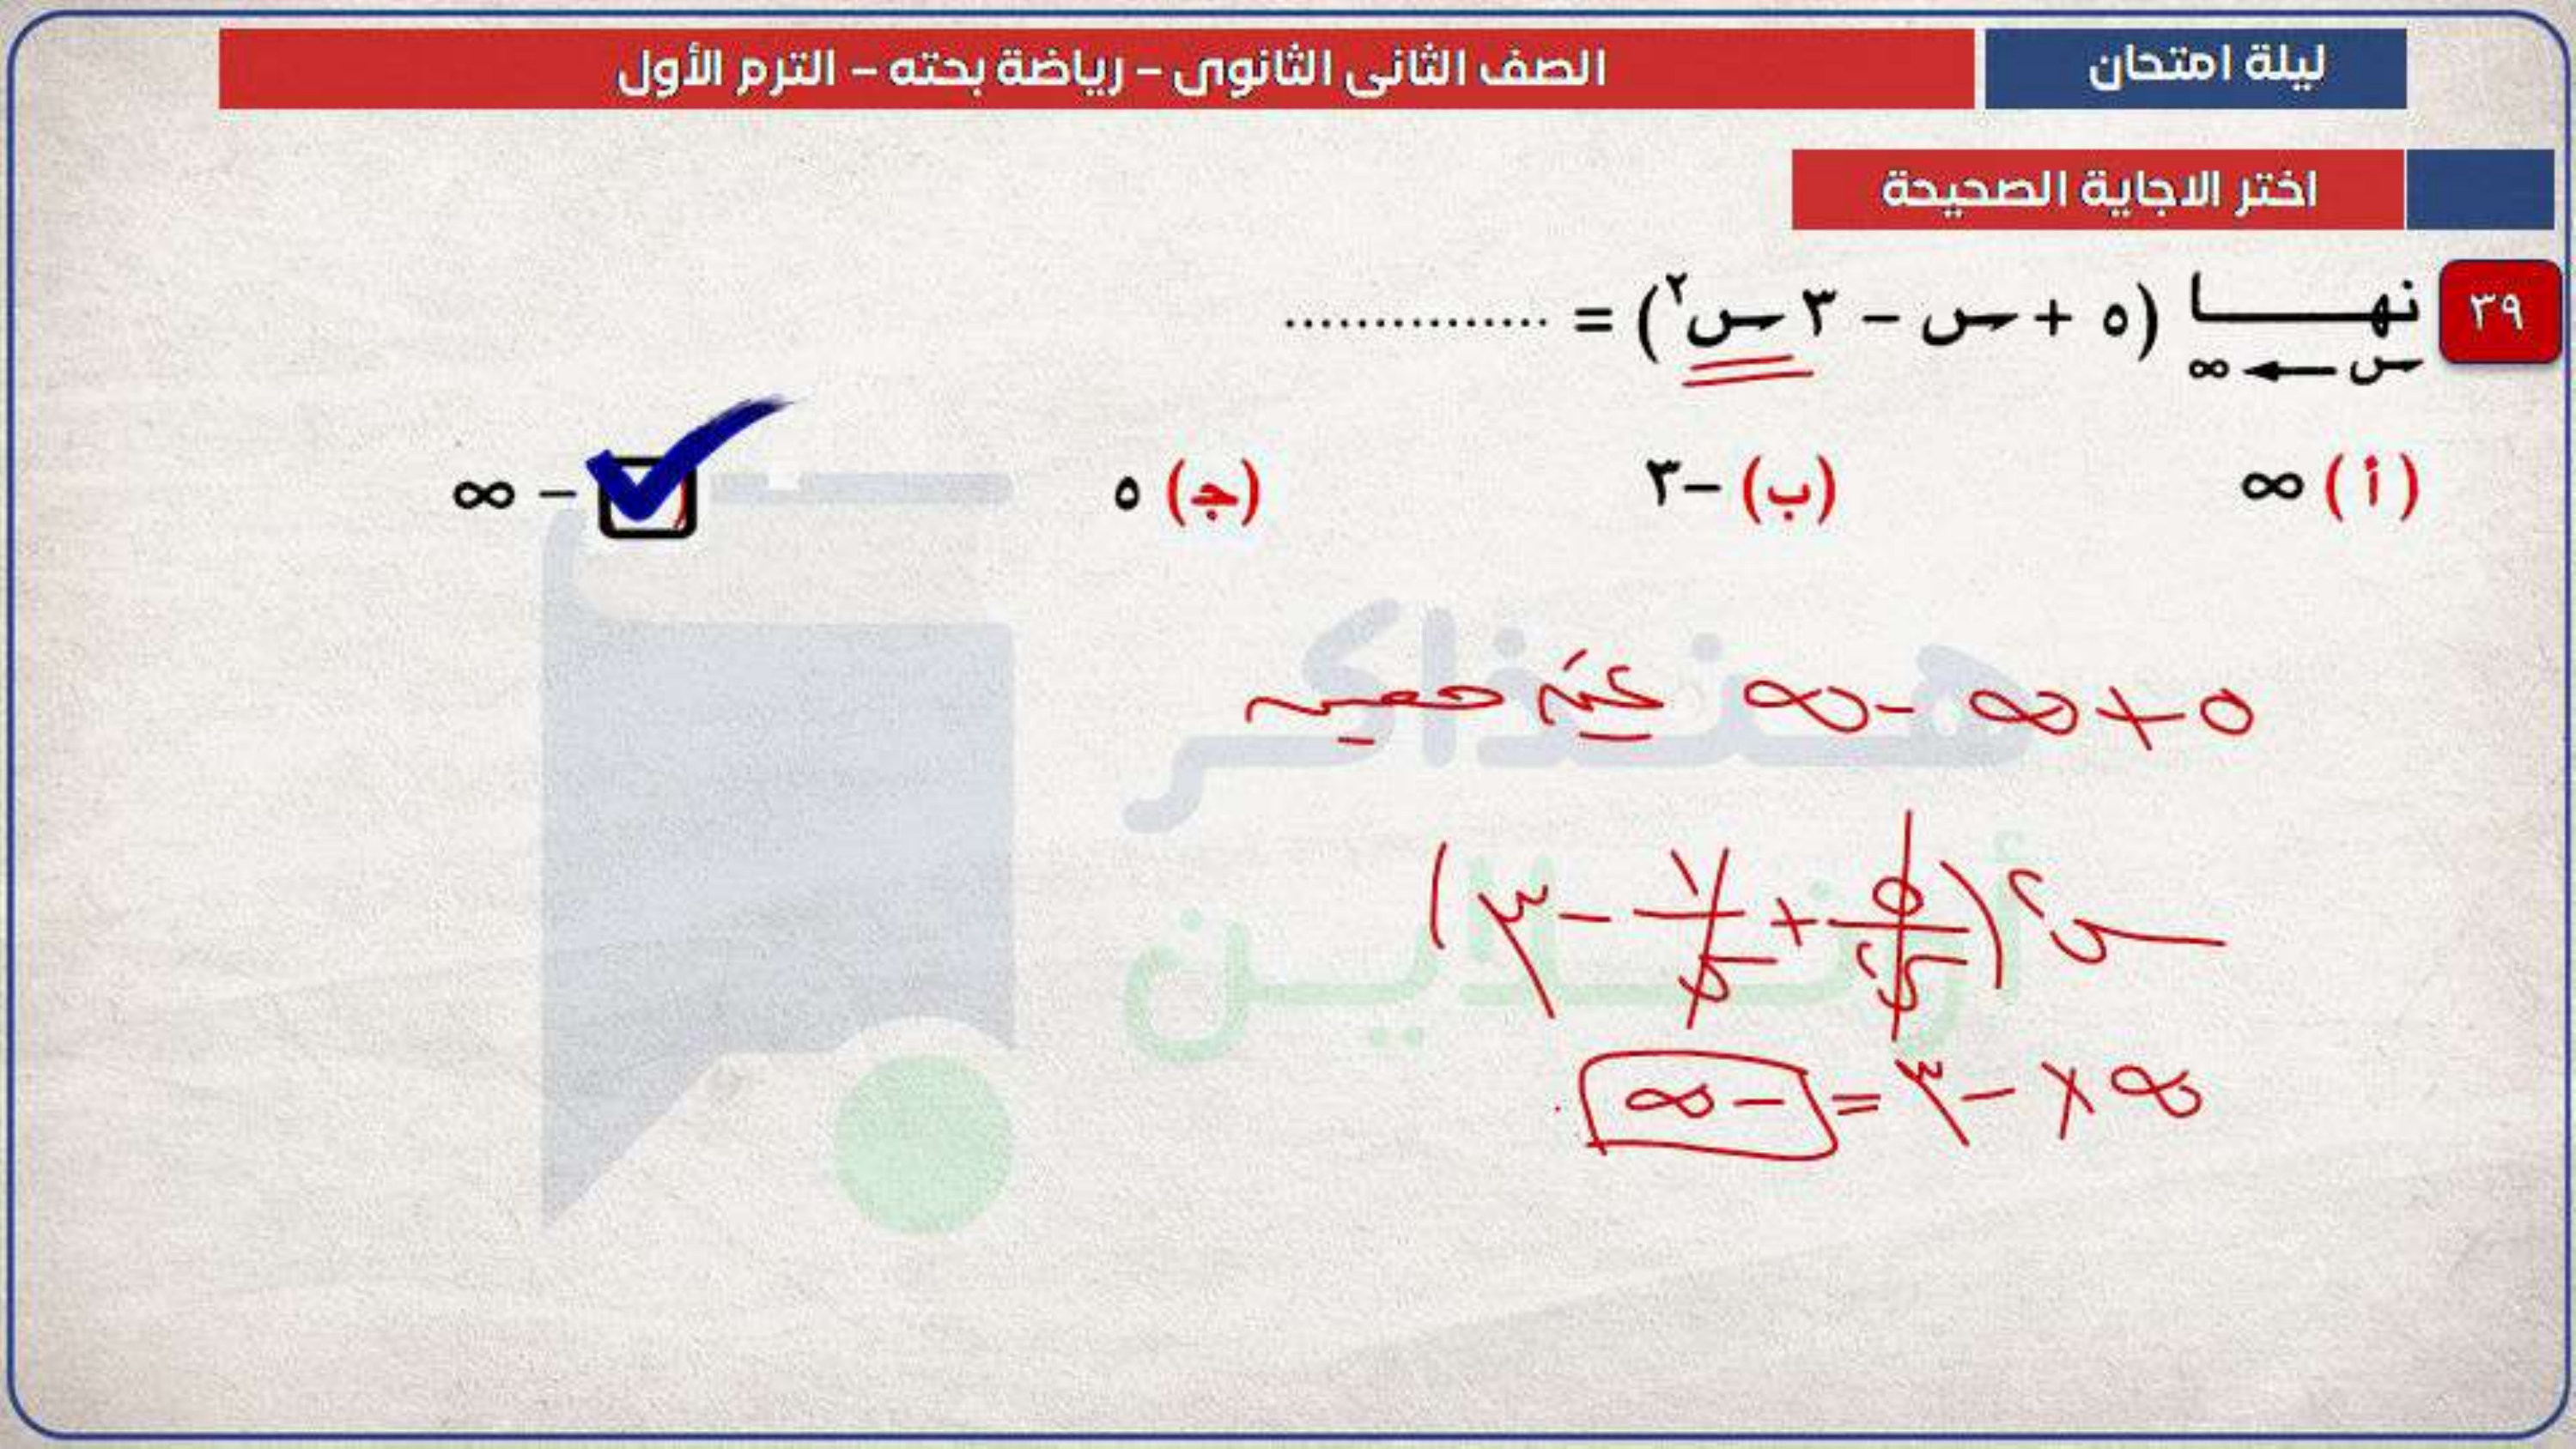 ليلة امتحان
الصف الثانى الثانوى – رياضة بحته – الترم الأول
اختر الاجاية الصحيحة
٣٩ نهــــا (٥ + س – ٣ س٢) = ...............
س ← ∞
(أ) ∞ (ب) –٣ (جـ) ٥ – ∞
٥ + ∞ - ∞ كمية غير معينة
س٢ (٥/س٢ + ١/س - ٣)
∞ × -٣ = -∞
هنذاكر
أونلاين